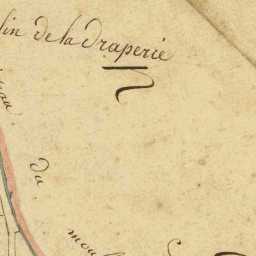 lin de la draperie
du
moul